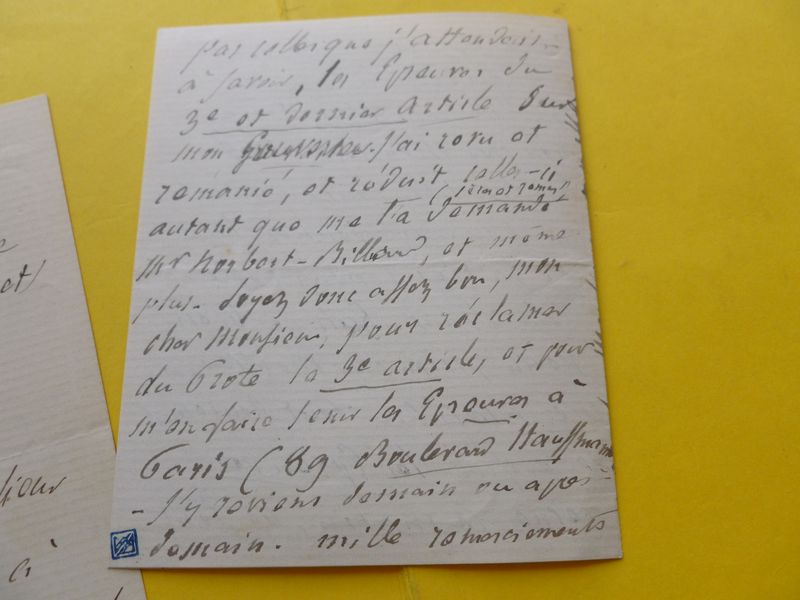 pas celles que j'attendais
à savoir, les Epreuves du
3e et dernier article sur
mon j'ai revu et
remanié, et réduit celles-ci
(1ères et
autant que me l'a demandé
Mr Norbert-Billard, et même
plus. Soyez donc assez bon, mon
cher Monsieur, pour réclamer
du Prote le 3e article, et pour
m'en faire tenir les Epreuves à
Paris (89 Boulevard Haussmann
- J'y reviens demain ou après-
demain. mille remerciements
et
à